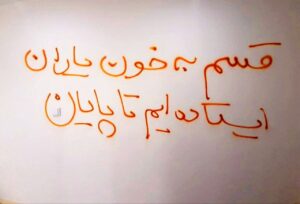 قسم به خون یاران
ایستاده ایم تا پایان